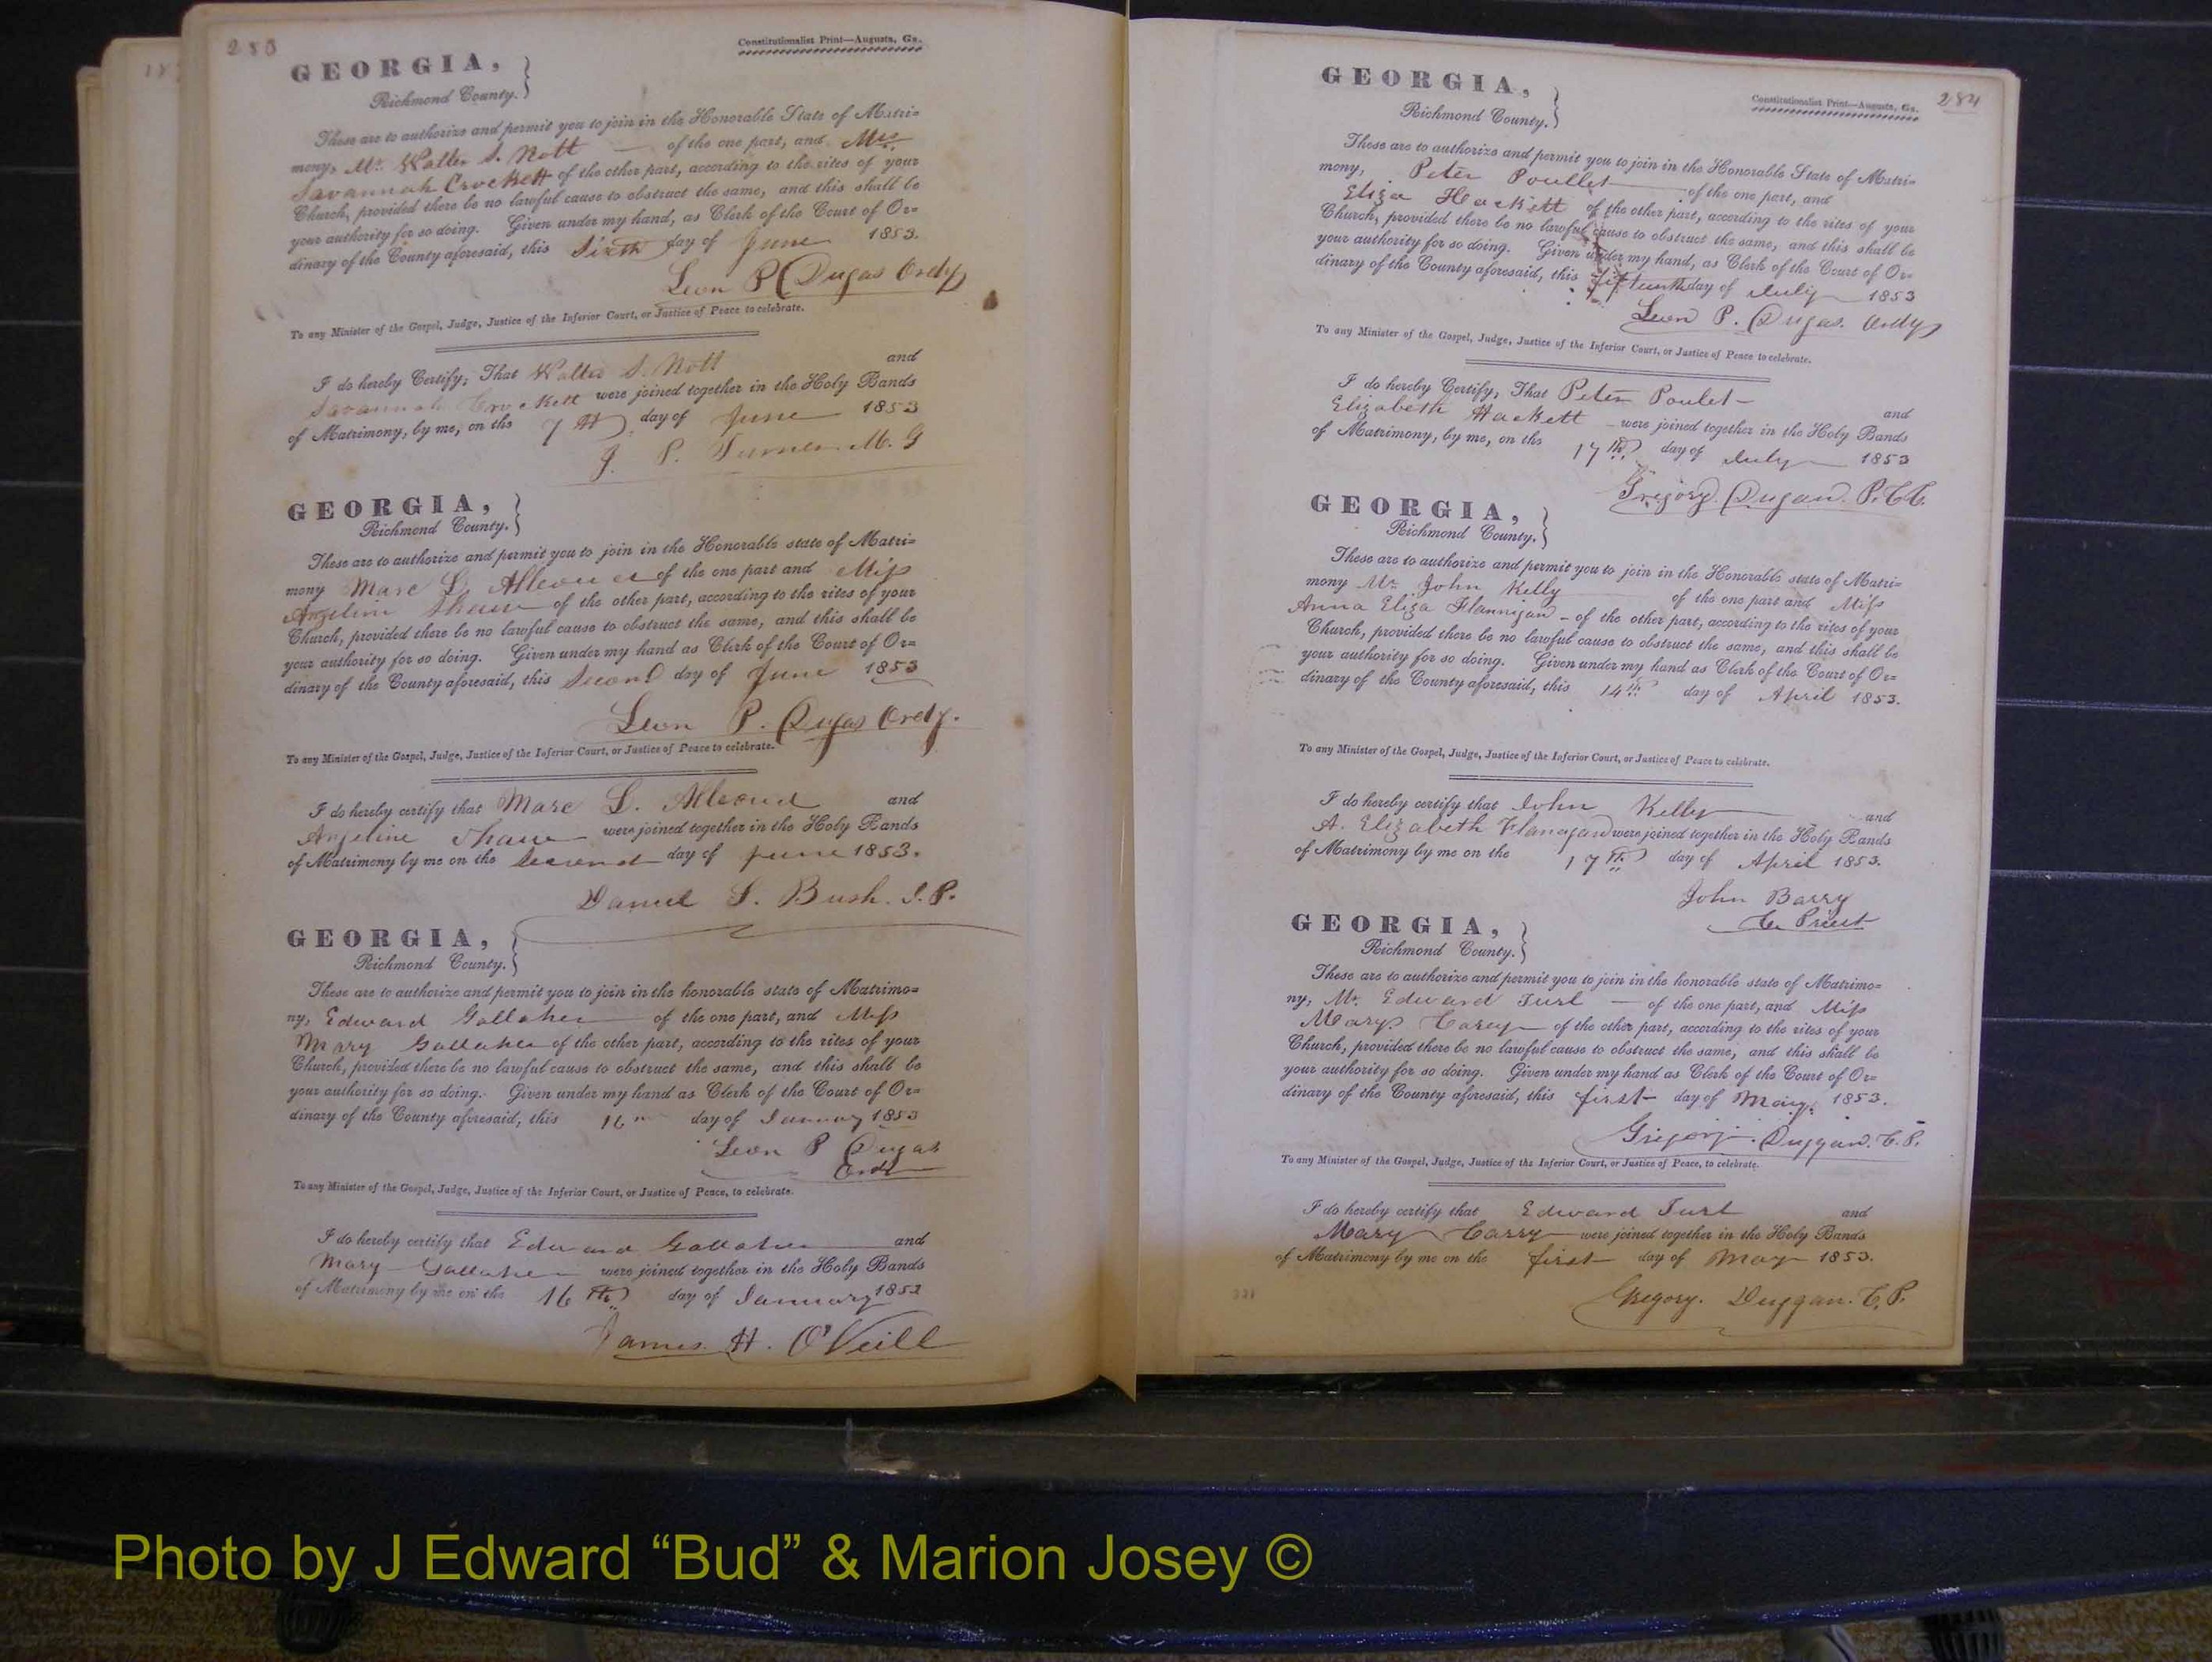 283
Constitutionalist Print—Augusta, Ga.
GEORGIA,
Richmond County.
These are to authorize and permit you to join in the Honorable State of Matri=
mony, Mr. Walter S. Nott of the one part, and
Savannah Crockett of the other part, according to the rites of your
Church, provided there be no lawful cause to obstruct the same, and this shall be
your authority for so doing. Given under my hand, as Clerk of the Court of Or=
dinary of the County aforesaid, this Sixth day of June 1853.
Leon P Dugas Ordy
To any Minister of the Gospel, Judge, Justice of the Inferior Court, or Justice of Peace to celebrate.
I do hereby Certify, That Walter S. Nott and
Savannah Crockett were joined together in the Holy Bands
of Matrimony, by me, on the 7th day of June 1853
J. P. Turner M. G
GEORGIA,
Richmond County.
These are to authorize and permit you to join in the Honorable state of Matri=
mony Marc L. of the one part and Miss
Angeline Shaw of the other part, according to the rites of your
Church, provided there be no lawful cause to obstruct the same, and this shall be
your authority for so doing. Given under my hand as Clerk of the Court of Or=
dinary of the County aforesaid, this Second day of June 1853
Leon P. Dugas Ordy.
To any Minister of the Gospel, Judge, Justice of the Inferior Court, or Justice of Peace to celebrate.
I do hereby certify that Marc L. and
Angeline Shaw were joined together in the Holy Bands
of Matrimony by me on the Second day of June 1853.
Daniel L. Bush. J. P.
GEORGIA,
Richmond County.
These are to authorize and permit you to join in the honorable state of Matrimo=
ny, Edward Gallaher of the one part, and Miss
Mary Gallaher of the other part, according to the rites of your
Church, provided there be no lawful cause to obstruct the same, and this shall be
your authority for so doing. Given under my hand as Clerk of the Court of Or=
dinary of the County aforesaid, this 16th day of January 1853
Leon P Dugas
Ordy
To any Minister of the Gospel, Judge, Justice of the Inferior Court, or Justice of Peace, to celebrate.
I do hereby certify that Edward Gallaher and
Mary Gallaher were joined together in the Holy Bands
of Matrimony by me on the 16th day of January 1853
James. H. O'Neill
284
Constitutionalist Print—Augusta, Ga.
GEORGIA,
Richmond County.
These are to authorize and permit you to join in the Honorable State of Matri=
mony, Peter Poullet of the one part, and
Eliza Hackett of the other part, according to the rites of your
Church, provided there be no lawful cause to obstruct the same, and this shall be
your authority for so doing. Given under my hand, as Clerk of the Court of Or=
dinary of the County aforesaid, this fifteenth day of July 1853
Leon P. Dugas. Ordy
To any Minister of the Gospel, Judge, Justice of the Inferior Court, or Justice of Peace to celebrate.
I do hereby Certify, That Peter Poulet and
Elizabeth Hackett were joined together in the Holy Bands
of Matrimony, by me, on the 17th day of July 1853
Gregory Dugan. P.C.C.
GEORGIA,
Richmond County.
These are to authorize and permit you to join in the Honorable state of Matri=
mony Mr. John Kelly of the one part and Miss
Anna Eliza Flannigan of the other part, according to the rites of your
Church, provided there be no lawful cause to obstruct the same, and this shall be
your authority for so doing. Given under my hand as Clerk of the Court of Or=
dinary of the County aforesaid, this 14th day of April 1853.
To any Minister of the Gospel, Judge, Justice of the Inferior Court, or Justice of Peace to celebrate.
I do hereby certify that John Kelly and
A. Elizabeth Flanagan were joined together in the Holy Bands
of Matrimony by me on the 17th day of April 1853.
John Barry
C. Priest
GEORGIA,
Richmond County.
These are to authorize and permit you to join in the honorable state of Matrimo=
ny, Mr. Edward of the one part, and Miss
Mary Carey of the other part, according to the rites of your
Church, provided there be no lawful cause to obstruct the same, and this shall be
your authority for so doing. Given under my hand as Clerk of the Court of Or=
dinary of the County aforesaid, this first day of May, 1853.
Gregory. Duggan. C. P.
To any Minister of the Gospel, Judge, Justice of the Inferior Court, or Justice of Peace, to celebrate.
I do hereby certify that Edward and
Mary Carry were joined together in the Holy Bands
of Matrimony by me on the first day of May 1853.
Gregory. Duggan. C. P.
Photo by J Edward “Bud” & Marion Josey ©